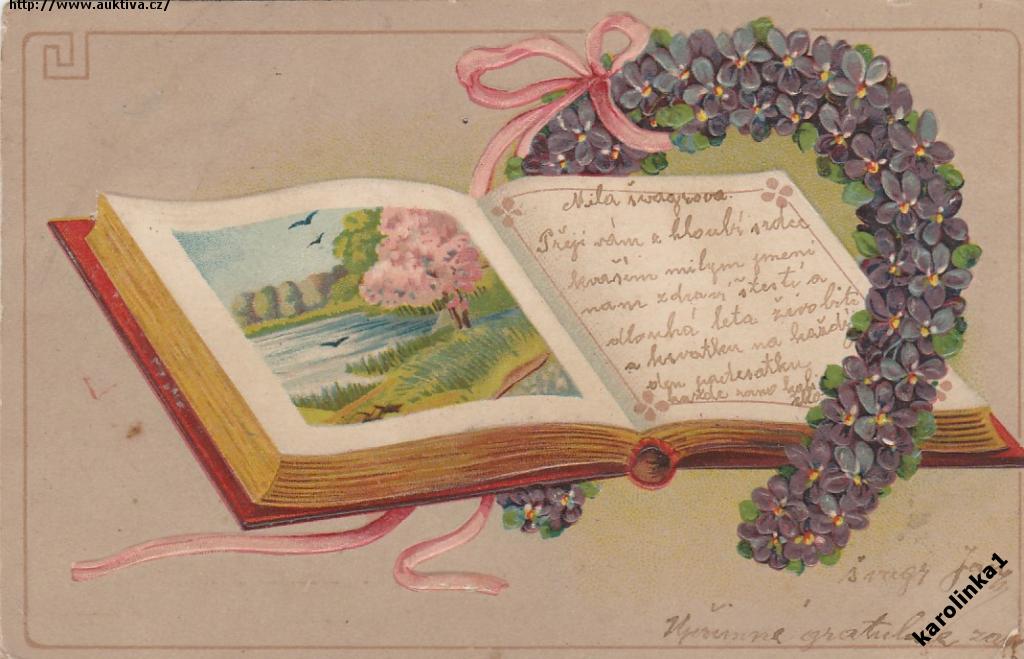 http://www.auktiva.cz/
Milá švagrova.
Přeji vám z hloubi srdce
k vašim milym jmeni
nam zdraví štěstí a
dlouhá leta živobití
a kravatku na každé
den padesatku
každe rano
švagr
Upřimná gratulace
karolinka1